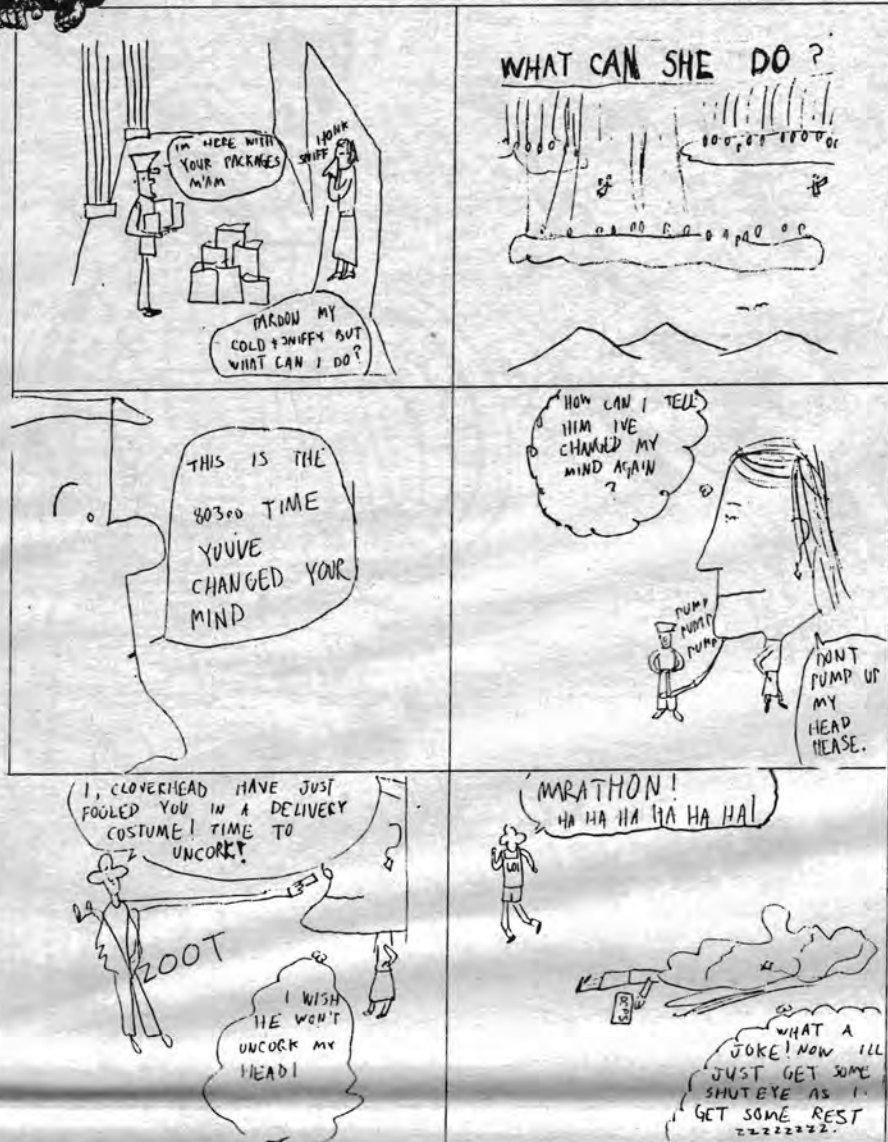 IM HERE WITH
YOUR PACKAGES
M'AM
HONK
SNIFF
PARDON MY
COLD & SNIFFY BUT
WHAT CAN I DO?
WHAT CAN SHE DO?
THIS IS THE
803RD TIME
YUUVE
CHANGED YOUR
MIND
HOW CAN I TELL
HIM IVE
CHANGED MY
MIND AGAIN
?
PUMP
PUMP
PUMP
DONT
PUMP UP
MY
HEAD
PLEASE.
I, CLOVERHEAD HAVE JUST
FOOLED YOU IN A DELIVERY
COSTUME! TIME TO
UNCORK!
ZOOT
I WISH
HE WON'T
UNCORK MY
HEAD!
MARATHON!
HA HA HA HA HA HA!
WHAT A
JOKE! NOW ILL
JUST GET SOME
SHUTEYE AS I
GET SOME REST
ZZZZZZZZ.